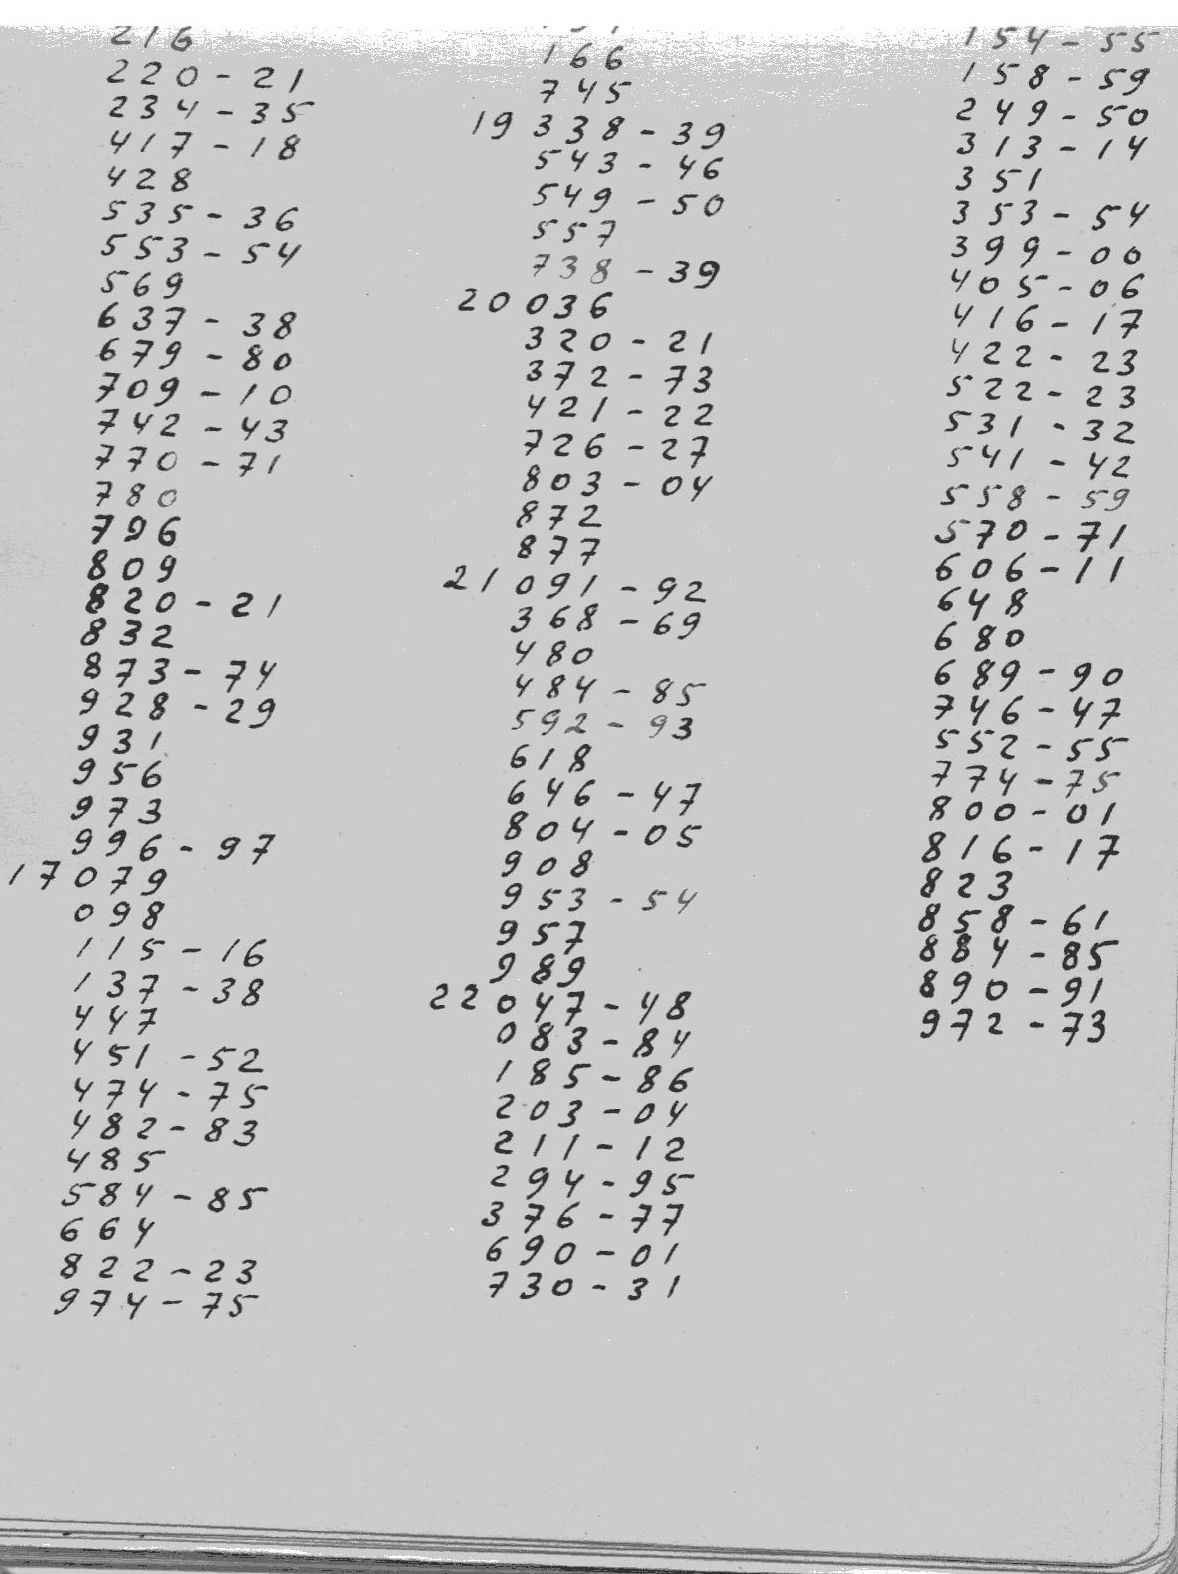 216
220-21
234-35
417-18
428
535-36
553-54
569
637-38
679-80
709-10
742-43
770-71
780
796
809
820-21
832
873-74
928-29
931
956
973
996-97
17079
098
115-16
137-38
447
451-52
474-75
482-83
485
584-85
664
822-23
974-75
166
745
19338-39
543-46
549-50
557
738-39
20036
320-21
372-73
421-22
726-27
803-04
872
877
21091-92
368-69
480
484-85
592-93
618
646-47
804-05
908
953-54
957
989
22047-48
083-84
185-86
203-04
211-12
294-95
376-77
690-01
730-31
154-55
158-59
249-50
313-14
351
353-54
399-00
405-06
416-17
422-23
522-23
531-32
541-42
558-59
570-71
606-11
648
680
689-90
746-47
552-55
774-75
800-01
816-17
823
858-61
884-85
890-91
972-73